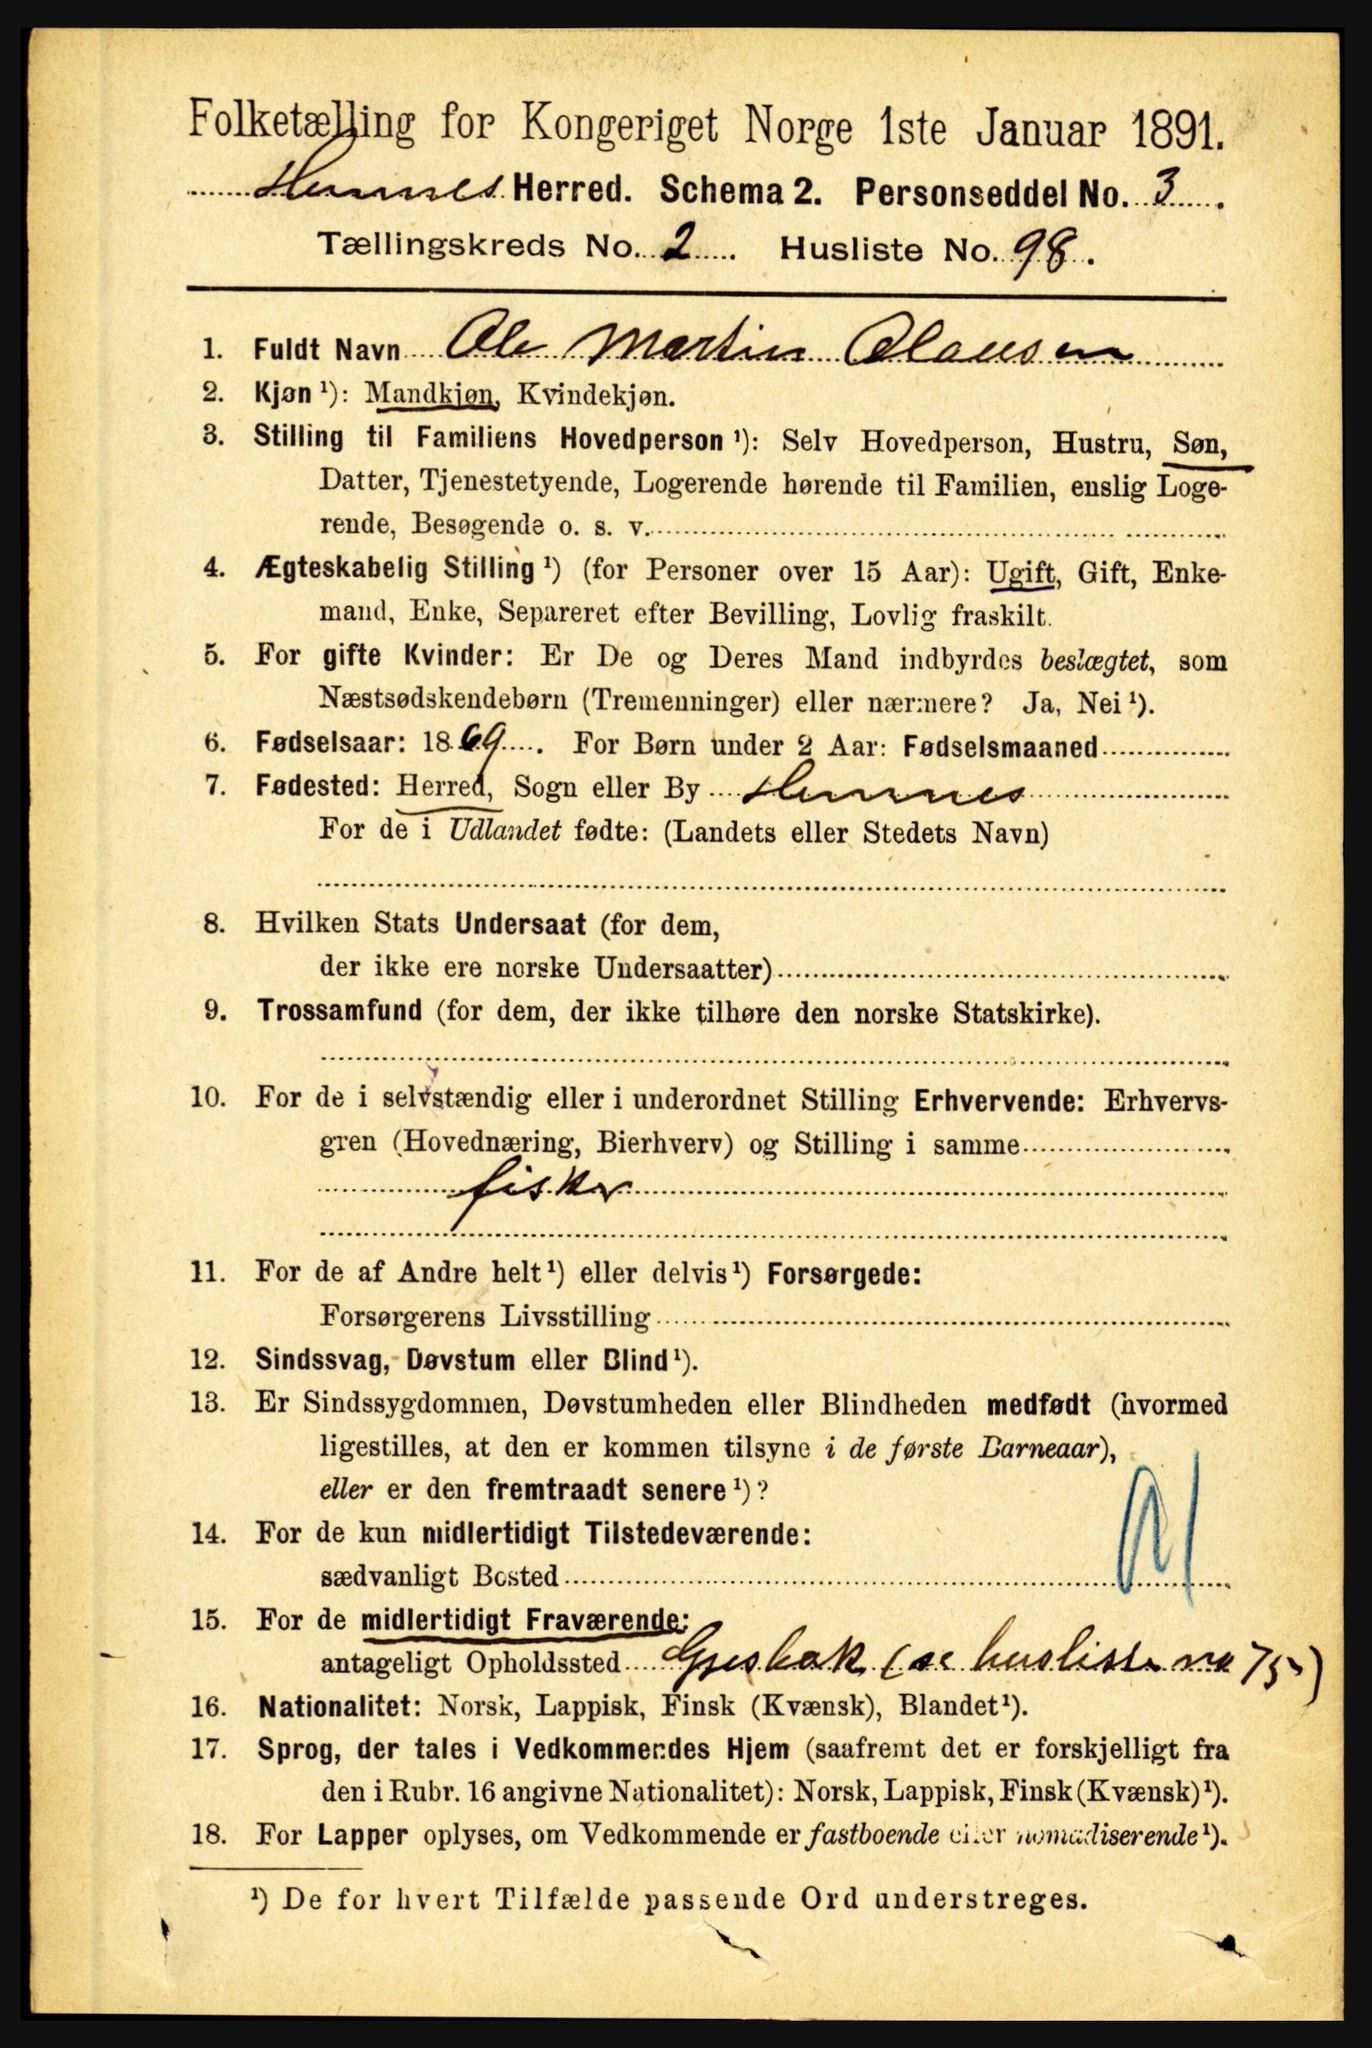 Folketælling for Kongeriget Norge 1ste Januar 1891.
Hemnes Herred. Schema 2. Personseddel No. 3.
Tællingskreds No. 2. Husliste No. 98.
1. Fuldt Navn Ole Martin Olausen
2. Kjøn ¹): Mandkjøn, Kvindekjøn.
3. Stilling til Familiens Hovedperson ¹): Selv Hovedperson, Hustru, Søn,
Datter, Tjenestetyende, Logerende hørende til Familien, enslig Loge-
rende, Besøgende o. s. v.
4. Ægteskabelig Stilling ¹) (for Personer over 15 Aar): Ugift, Gift, Enke-
mand, Enke, Separeret efter Bevilling, Lovlig fraskilt.
5. For gifte Kvinder: Er De og Deres Mand indbyrdes beslægtet, som
Næstsødskendebørn (Tremenninger) eller nærmere? Ja, Nei ¹).
6. Fødselsaar: 1869. For Børn under 2 Aar: Fødselsmaaned
7. Fødested: Herred, Sogn eller By Hemnes
For de i Udlandet fødte: (Landets eller Stedets Navn)
8. Hvilken Stats Undersaat (for dem,
der ikke ere norske Undersaatter)
9. Trossamfund (for dem, der ikke tilhøre den norske Statskirke).
10. For de i selvstændig eller i underordnet Stilling Erhvervende: Erhvervs-
gren (Hovednæring, Bierhverv) og Stilling i samme
fisker
11. For de af Andre helt ¹) eller delvis ¹) Forsørgede:
Forsørgerens Livsstilling
12. Sindssvag, Døvstum eller Blind ¹).
13. Er Sindssygdommen, Døvstumheden eller Blindheden medfødt (hvormed
ligestilles, at den er kommen tilsyne i de første Barneaar),
eller er den fremtraadt senere ¹)?
14. For de kun midlertidigt Tilstedeværende:
sædvanligt Bosted
15. For de midlertidigt Fraværende:
antageligt Opholdssted Gjesbak (se husliste no 75)
16. Nationalitet: Norsk, Lappisk, Finsk (Kvænsk), Blandet ¹).
17. Sprog, der tales i Vedkommendes Hjem (saafremt det er forskjelligt fra
den i Rubr. 16 angivne Nationalitet): Norsk, Lappisk, Finsk (Kvænsk) ¹).
18. For Lapper oplyses, om Vedkommende er fastboende eller nomadiserende ¹).
¹) De for hvert Tilfælde passende Ord understreges.